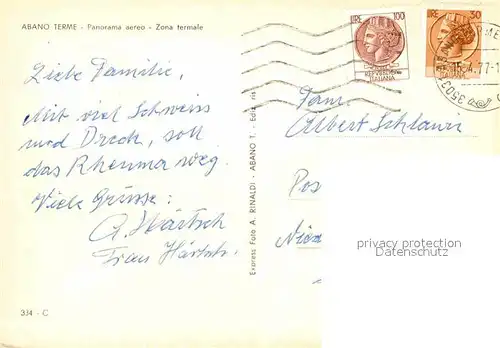 ABANO TERME - Panorama aereo - Zona termale
Liebe Familie,
Mit viel Schweiss
und Dreck, soll
das Rheuma weg.
Viele Grüsse:
A. Härtsch
Frau Härtsch
334 - C
Express Foto A. RINALDI - ABANO T. - Ediz. ris.
LIRE 100
REPUBBLICA
ITALIANA
LIRE 50
4.77-1
3503
Fam.
Albert Schlawi
Pos
Nied
privacy protection
Datenschutz